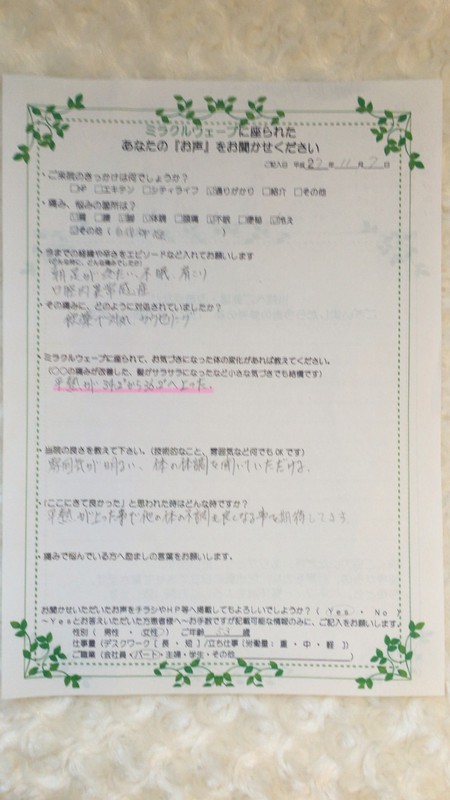 ミラクルウェーブに座られた
あなたの『お声』をお聞かせください
ご記入日 平成27年11月7日
ご来院のきっかけは何でしょうか?
□HP □エキテン □シティライフ ☑通りがかり □紹介 □その他
痛み、悩みの箇所は?
☑不眠 □便秘 ☑冷え
☑その他(
今までの経緯や辛さをエピソードなど入れてお願いします
(どんな時に、どんな痛みでしたか?)
手足が冷たい、不眠、肩こり
口腔内異常感症
その痛みに、どのように対処されていましたか?
ミラクルウェーブに座られて、お気づきになった体の変化があれば教えてください。
(〇〇の痛みが改善した、髪がサラサラになったなど小さな気づきでも結構です)
当院の良さを教えて下さい。(技術的なこと、雰囲気など何でもOKです)
雰囲気が明るい、体の体調を聞いていただける。
「ここにきて良かった」と思われた時はどんな時ですか?
平熱が上った事や他の体の不調も良くなる事を期待してます
痛みで悩んでいる方へ励ましの言葉をお願いします。
お聞かせいただいたお声をチラシやHP等へ掲載してもよろしいでしょうか?(Yes・No)
～Yesとお答えいただいた方患者様へ～お手数ですが記載可能な情報のみに、ご記入をお願いします。
性別(男性・女性) ご年齢 53 歳
仕事量(デスクワーク[長・短]/立ち仕事[労働量:重・中・軽])
ご職業(会社員・パート・主婦・学生・その他